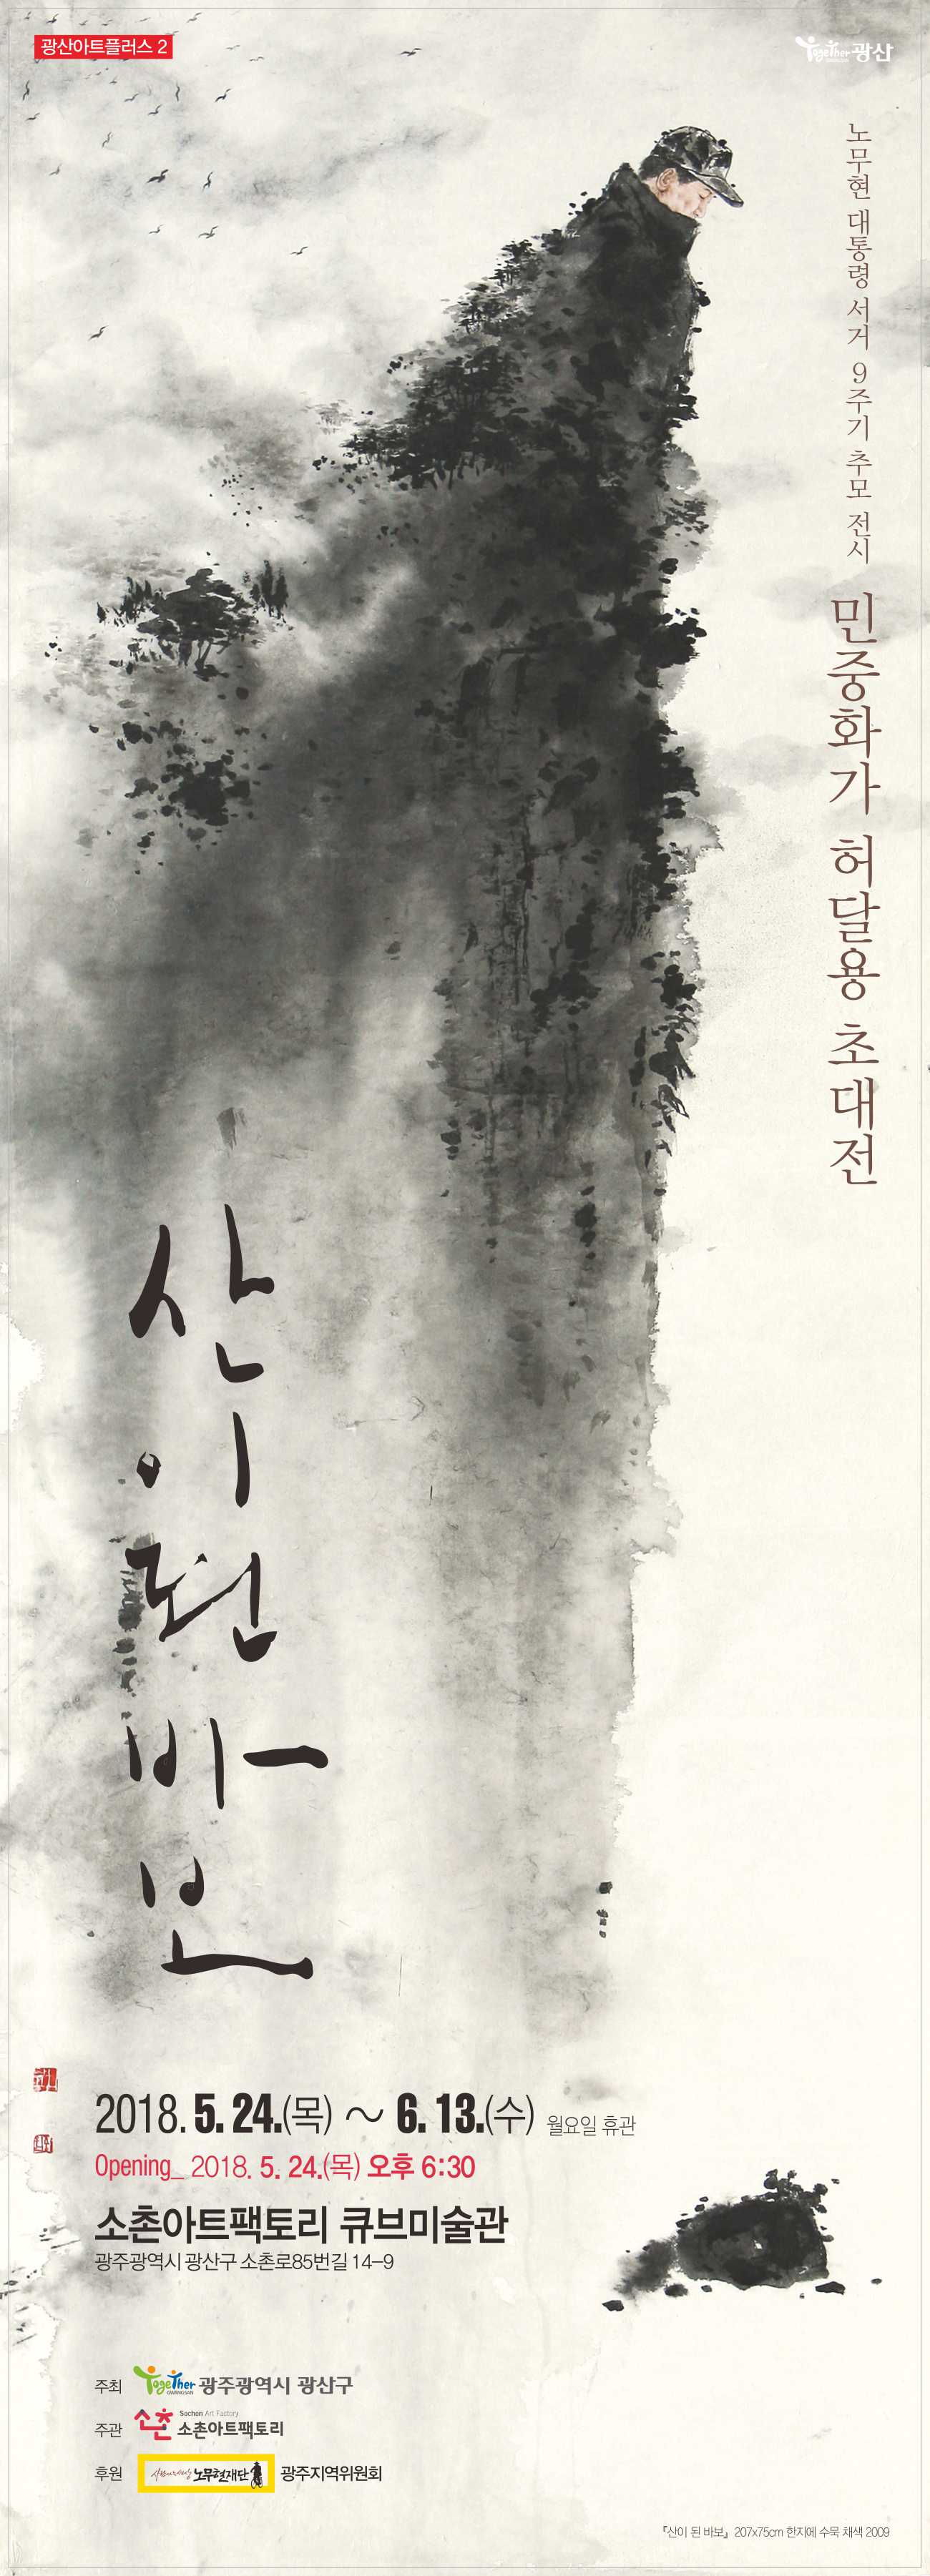 광산아트플러스 2
Together 광산
GWANGSAN
노무현 대통령 서거 9주기 추모 전시
민중화가 허달용 초대전
산이된바보
2018. 5. 24.(목) ～ 6. 13.(수) 월요일 휴관
Opening_ 2018. 5. 24.(목) 오후 6:30
소촌아트팩토리 큐브미술관
광주광역시 광산구 소촌로85번길 14-9
주최 Together GWANGSAN 광주광역시 광산구
주관 소촌 Sochon Art Factory 소촌아트팩토리
후원 사람사는세상 노무현재단 광주지역위원회
『산이 된 바보』 207x75cm 한지에 수묵 채색 2009